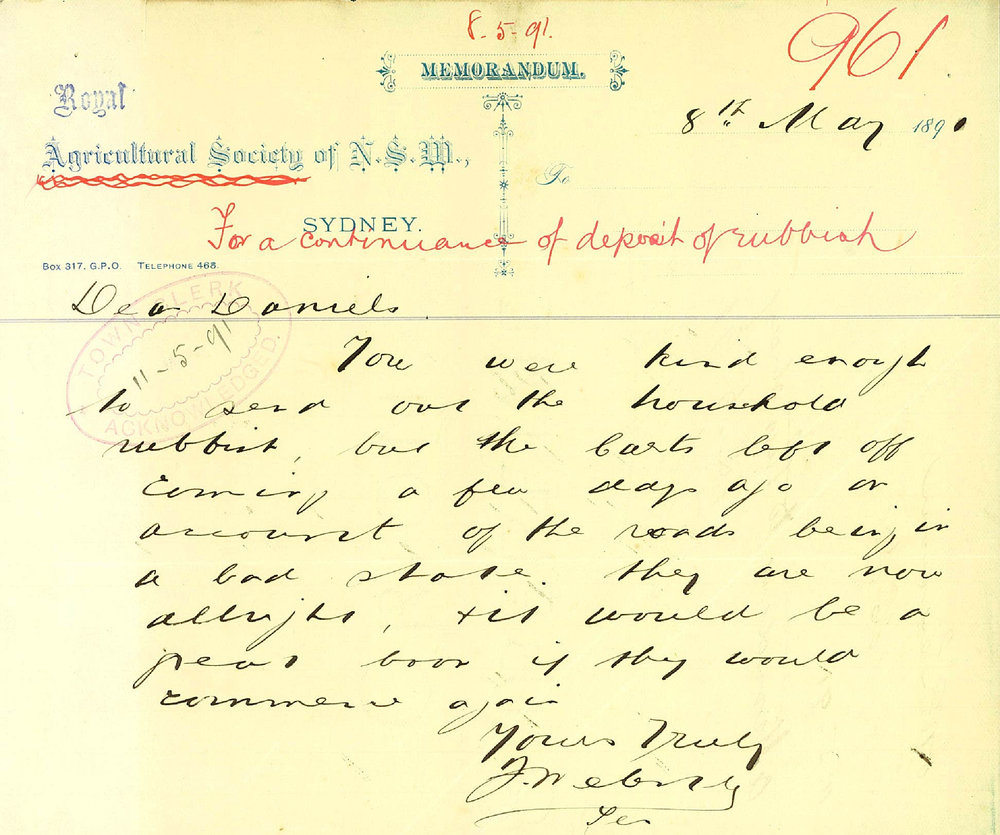 8-5-91.
961
MEMORANDUM.
Royal
8th May 1891
Agricultural Society of N.S.W.,
To
SYDNEY.
For a continuance of deposit of rubbish
Box 317, G.P.O. TELEPHONE 468.
TOWN CLERK
11-5-91
ACKNOWLEDGED.
Dear Daniels.
You were kind enough
to send out the household
rubbish, but the carts left off
coming a few days ago on
account of the roads being in
a bad state. they are now
allright, & it would be a
great boon if they would
commence again
Yours Truly
F Webster
Sec